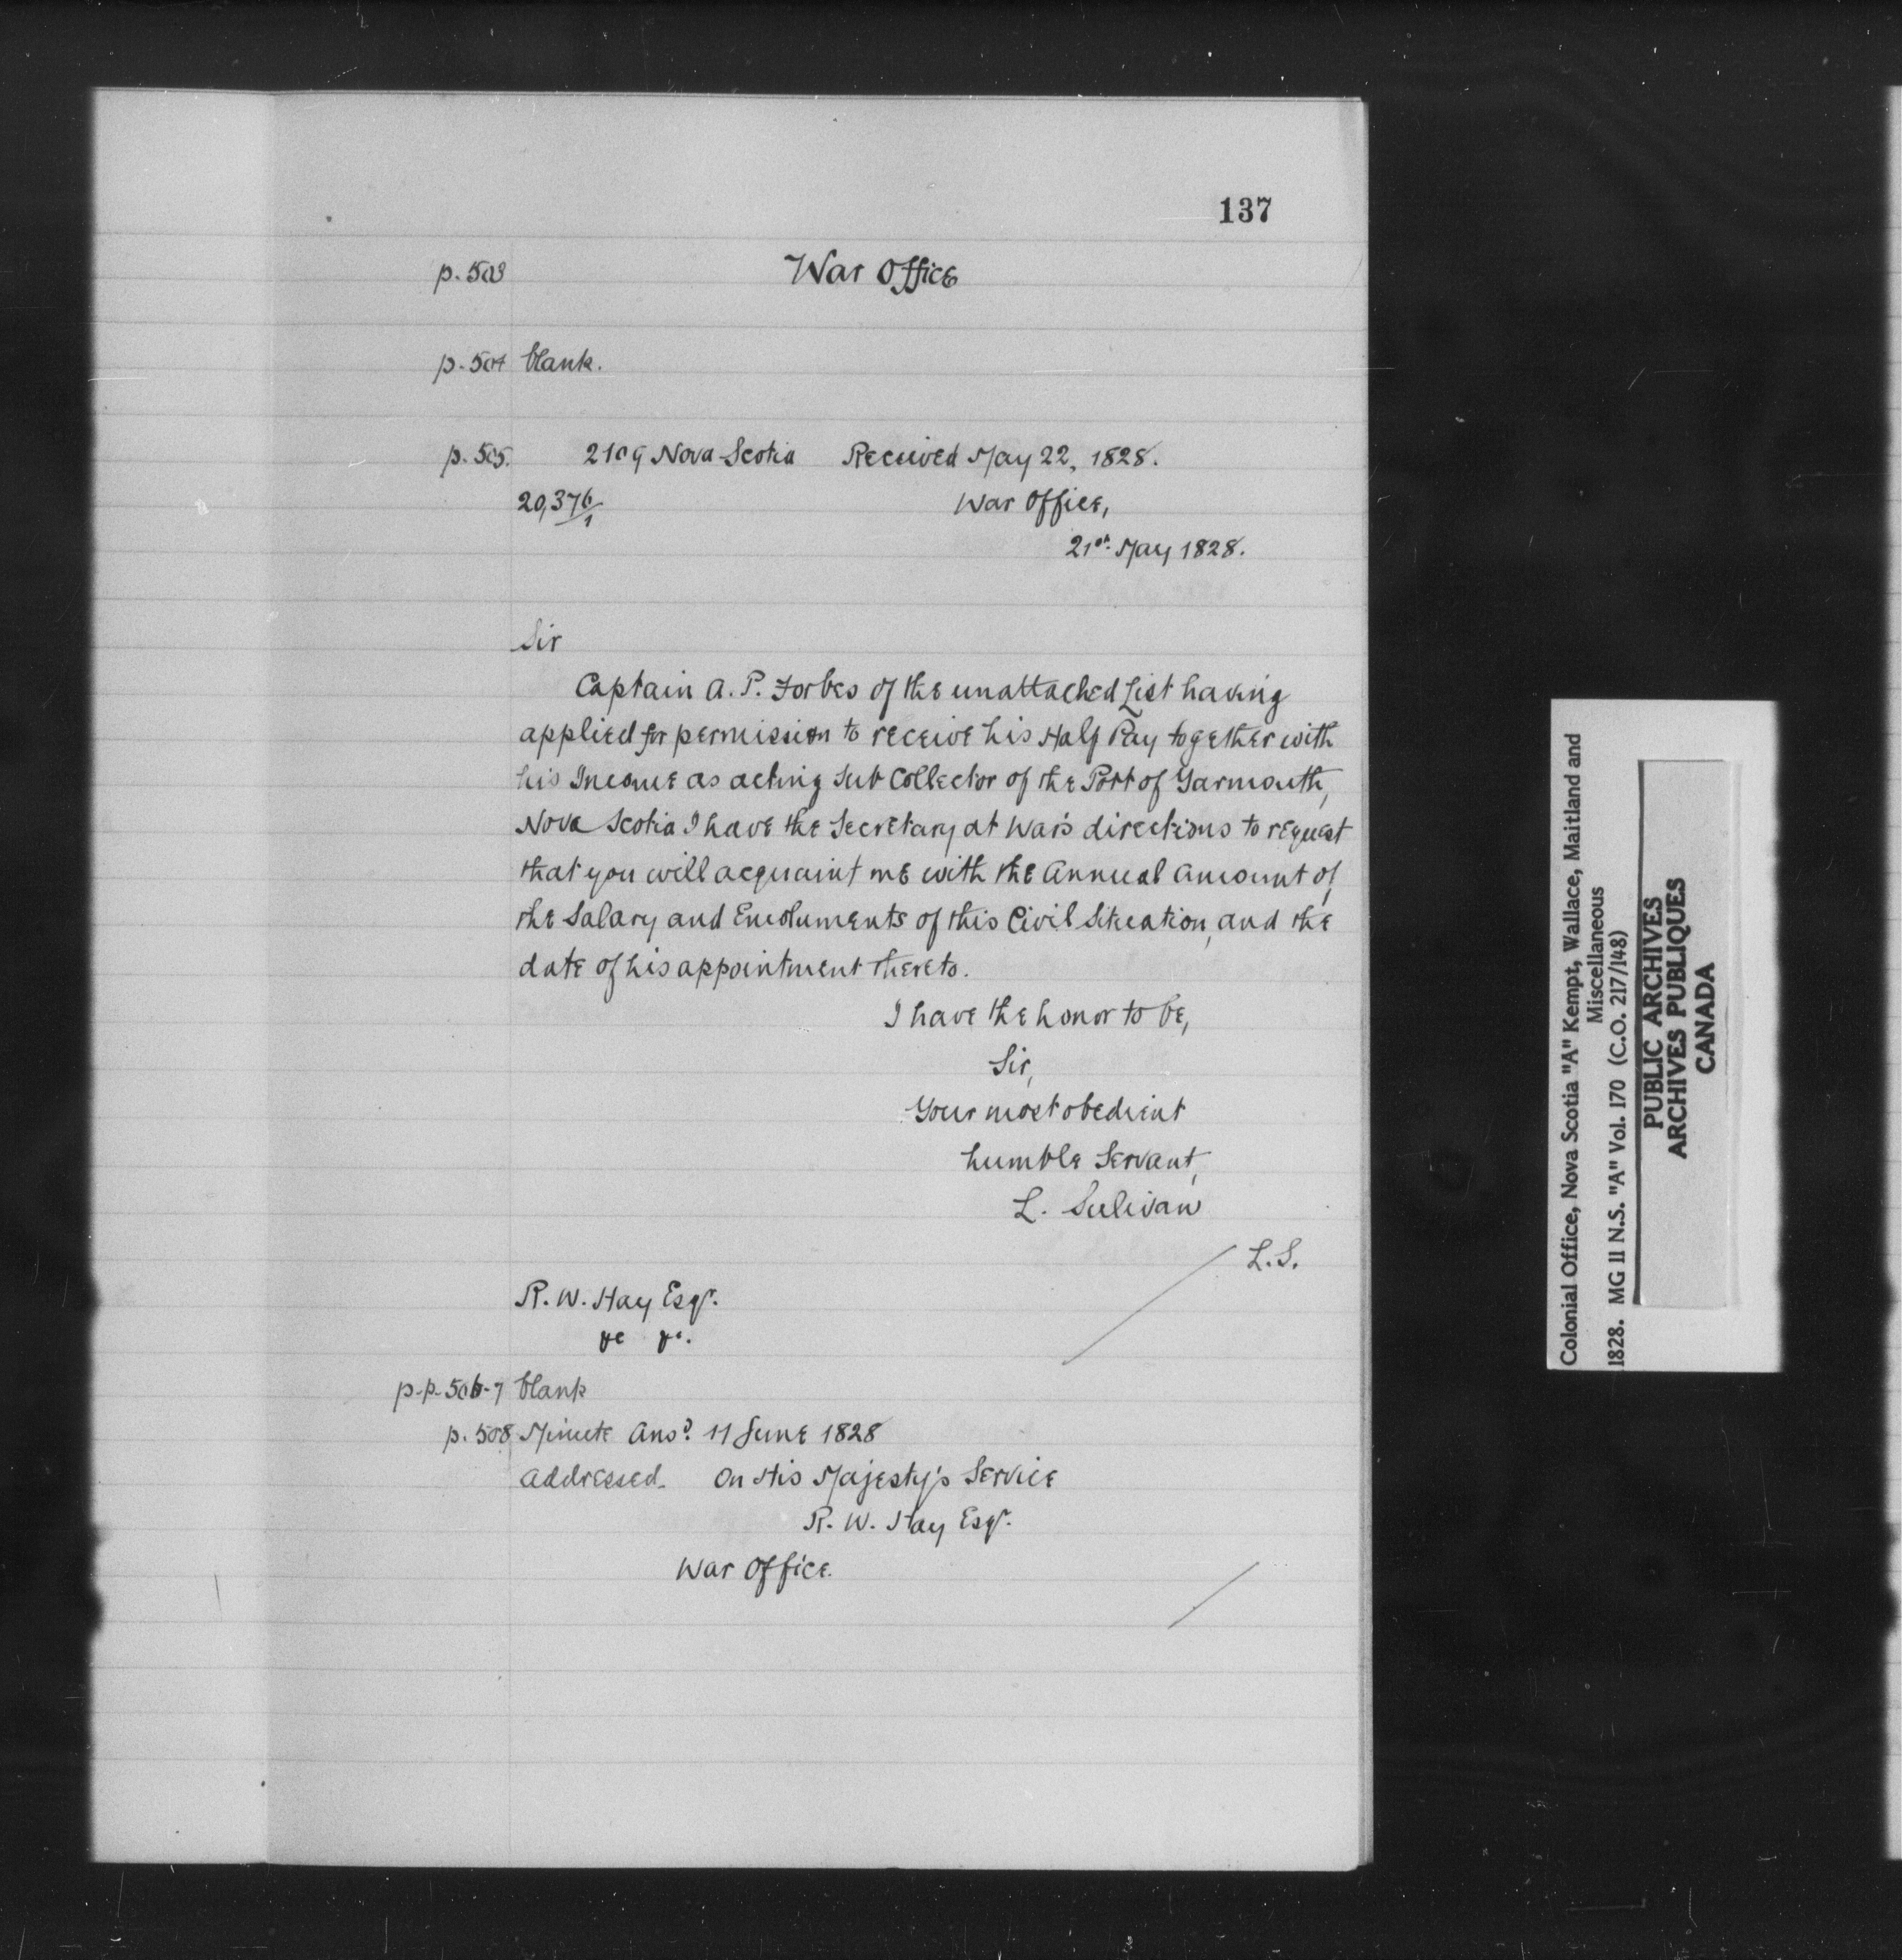 137
p. 503 War Office
p. 504 blank.
p. 505. 2109 Nova Scotia Received May 22, 1828.
20,376/1 War Office,
21st May 1828.
Sir
Captain A. P. Forbes of the unattached List having
applied for permission to receive his Half Pay together with
his Income as acting Sub Collector of the Port of Yarmouth,
Nova Scotia I have the Secretary at War's directions to request
that you will acquaint me with the Annual Amount of
the Salary and Emoluments of this Civil Situation, and the
date of his appointment thereto.
I have the honor to be,
Sir,
Your most obedient
humble Servant,
L. Sulivan
L.S.
R. W. Hay Esqr.
&c &c.
p.p. 506-7 blank
p. 508 Minute Ansd. 11 June 1828
Addressed. On His Majesty's Service
R. W. Hay Esqr.
War Office.
Colonial Office, Nova Scotia "A" Kempt, Wallace, Maitland and
Miscellaneous
1828. MG 11 N.S. "A" Vol. 170 (C.O. 217/148)
PUBLIC ARCHIVES
ARCHIVES PUBLIQUES
CANADA